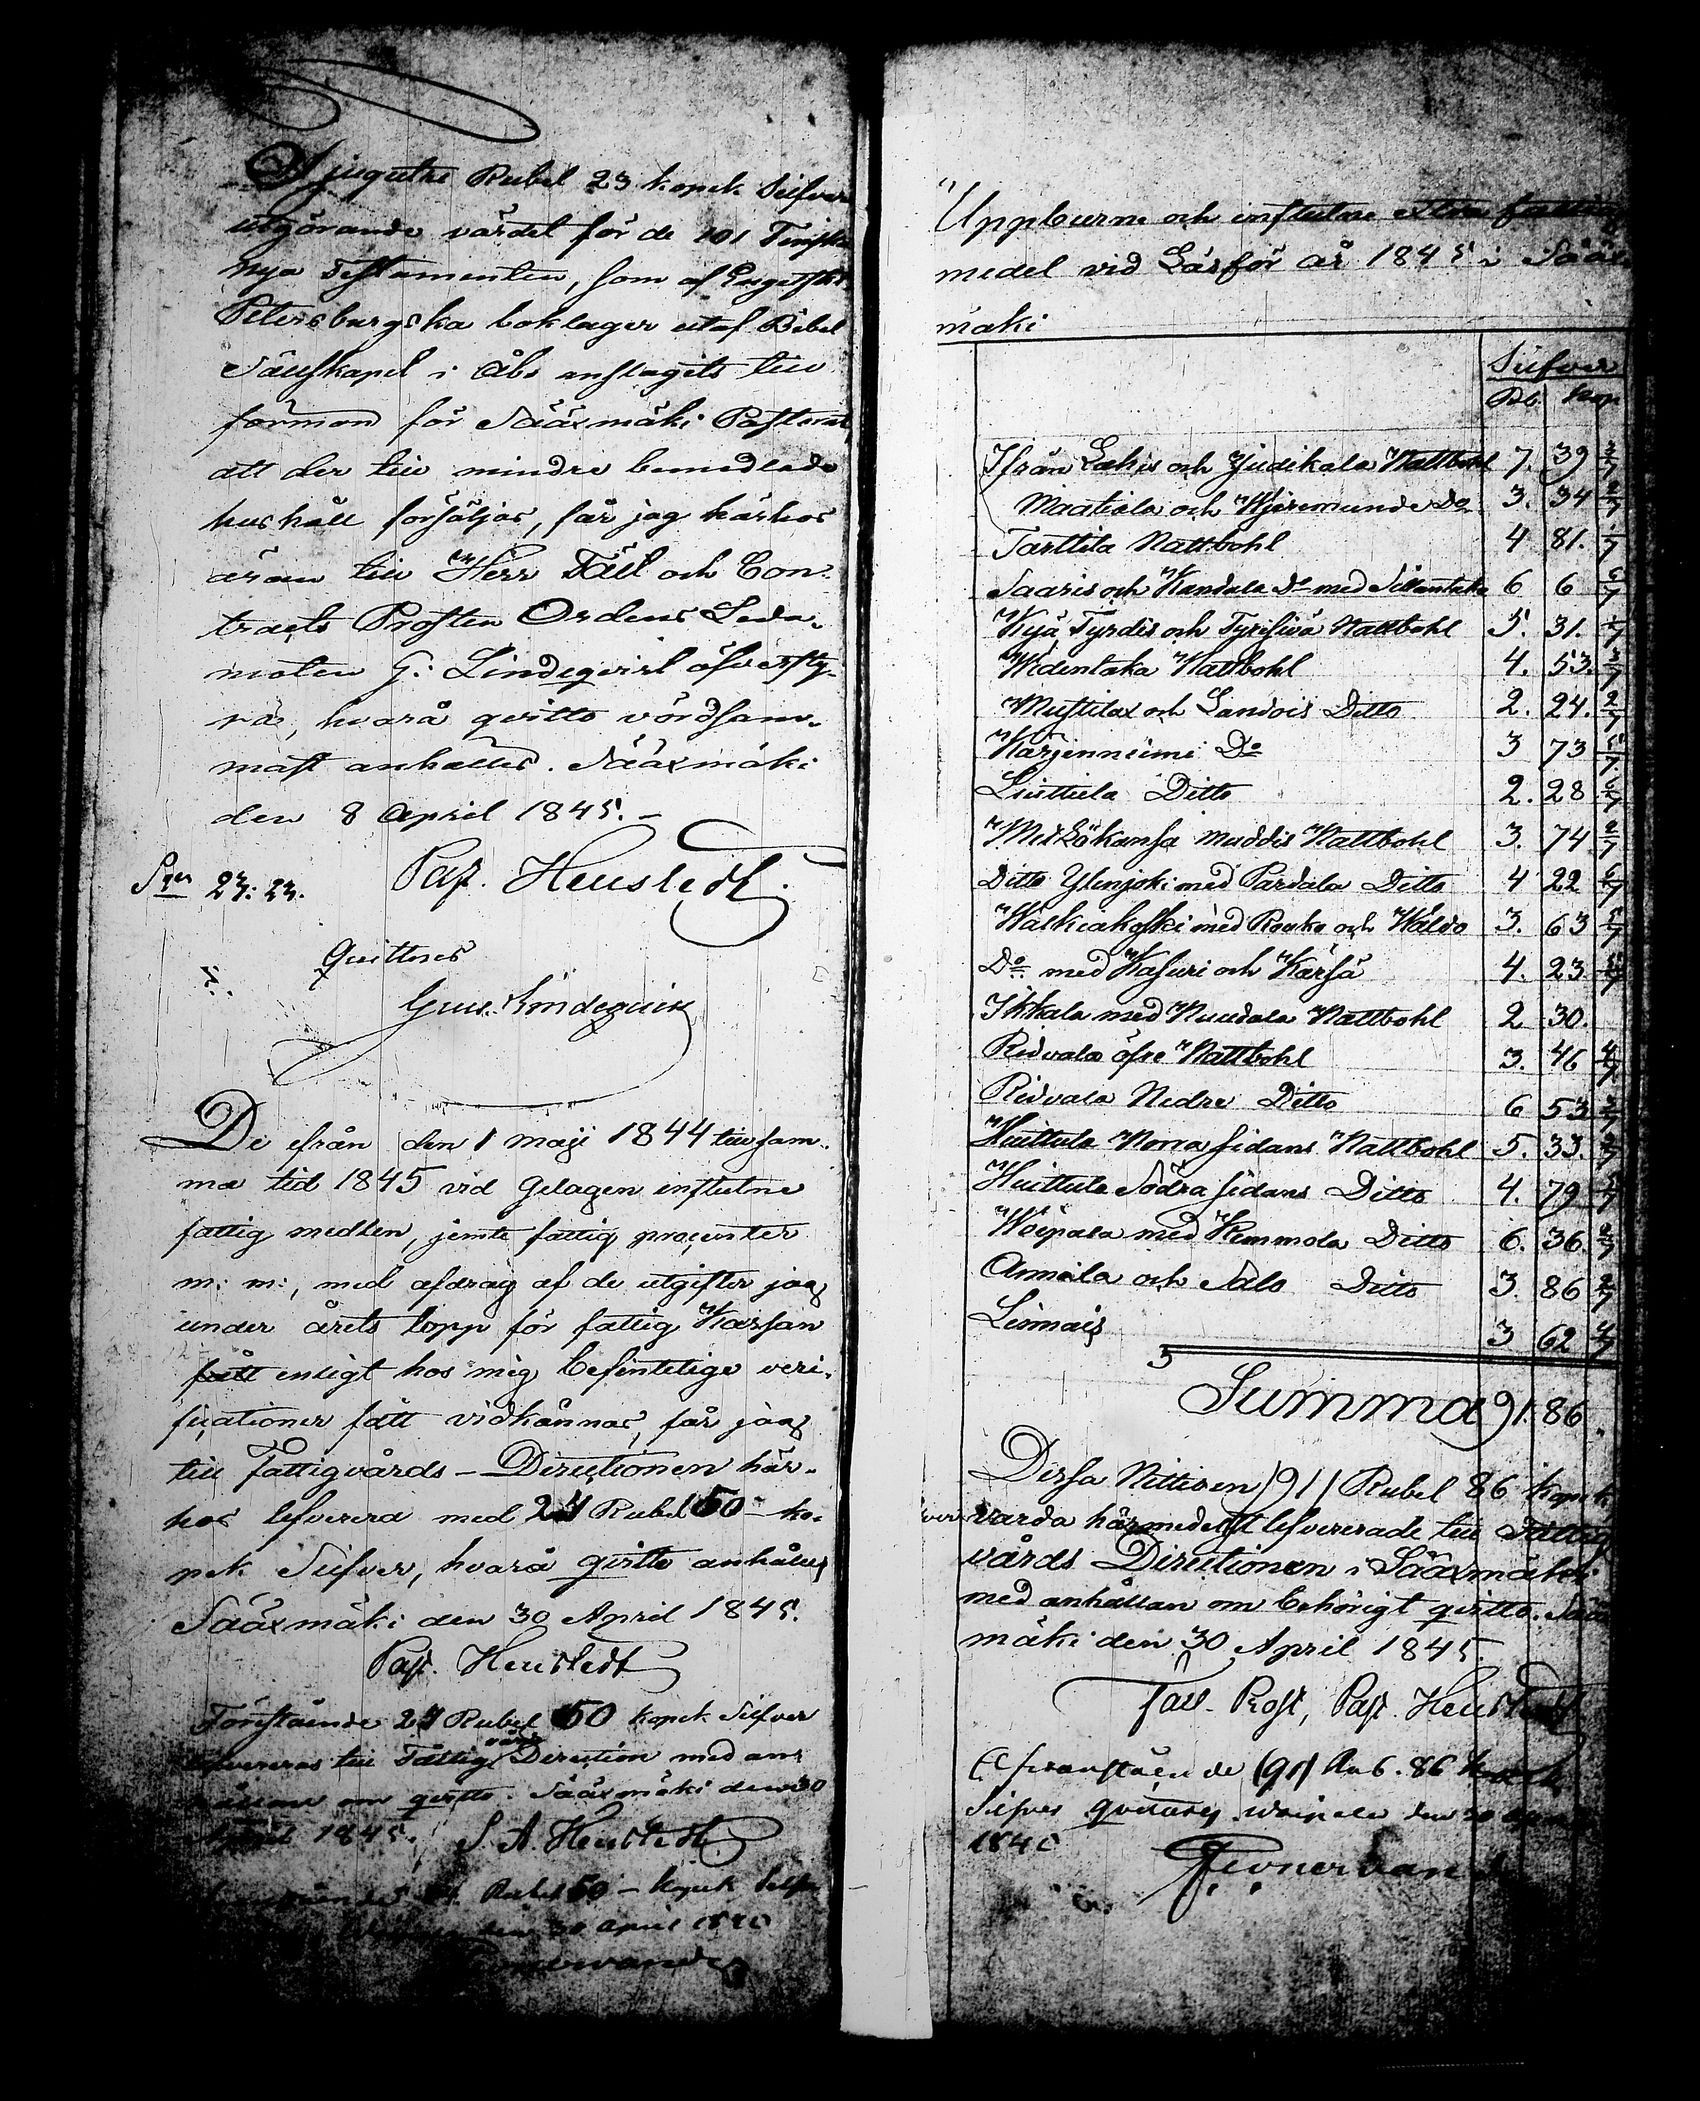 Tjugutre Rubel 23 kopek Silfver
utgörande värdet för de 101 Finska
nya Testamenten, som af
Petersburgska boklager utaf Bibel
Sällskapet i Åbo anslagits till
förmon för Sääxmäki Pastorat,
att der till mindre bemedlade
hushåll försäljas, får jag härhos
äran till Herr Fält och Con-
tracts Prosten Ordens Leda-
moten G: Lindeqvist öfversty-
ra, hvarå qvitto vördsam-
mast anhålles. Sääxmäki
den 8 April 1845.-
Srn 23: 23. Past. Heustedt.
Quitteras
Gus. Lindequist
De ifrån den 1 Maji 1844 till sam-
ma tid 1845 vid Gelagen influtne
fattig medlen, jemte fattig procenter
m: m:, med afdrag af de utgifter jag
under årets lopp för fattig Kassan
fått enligt hos mig befintelige veri-
ficationer fått vidkännas, får jag
till Fattigvårds-Directionen här-
hos lefverera med 24 Rubel 50 - ko-
pek Silfver, hvarå qvitto anhålles
Sääxmäki den 30 April 1845.
Past. Heustedt
Förestående 24 Rubel 50 kopek Silfver
lefvereras till Fattigvårds Direction med an-
hållan om qvitto. Sääxmäki den 30
April 1845. S. A. Heustedt
Rubel 50 - kopek Silfver
den 30 April 1845
Uppburne och influtne extra fattig
medel vid Läsför år 1845 i Sääx
mäki
Silfver
Rb. Kop
Ifrån Lahis och Judikala Nattbohl 7. 39 3/7
Maatiala och Wjeremunde Do 3. 34 2/7
Tarttila Nattbohl 4 81. 1/7
Saaris och Kandala Do med Sillantaka 6 6 6/7
Kyä, Tyrdis och Tyrisivä Nattbohl 5. 31. 1/7
Widentaka Nattbohl 4. 53. 3/7
Mustila och Landois Ditto 2. 24. 2/7
Karjenniemi Do 3 73 5/7
Liuttula Ditto 2. 28 6/7
Met Kökansa Muddis Nattbohl 3. 74 2/7
Ditto Ylenjoki med Pardala Ditto 4 22 6/7
Walkiakoski med Rouko och Wäldo 3. 63 5/7
Do med Kasuri och Kärsä 4. 23 5/7
Ikkala med Nuudala Nattbohl 2 30.
Ridvala öfre Nattbohl 3. 46 4/7
Ridvala Nedre Ditto 6 53 3/7
Huittula Norra sidans Nattbohl 5. 33. 2/7
Huittula Södra sidans Ditto 4. 79 5/7
Woipala med Kemmola Ditto 6. 36. 2/7
Annila och Salo Ditto 3. 86 2/7
Linnais 3 62 4/7
Summa 91: 86.
Dessa Nittioen /91/ Rubel 86 kopek
varda härmedelst lefvererade till Fattig
vårds Directionen i Sääxmäki
med anhållan om behörigt qvitto. Sääx
mäki den 30 April 1845.
Past. Heustedt
Ofvanstående (91) Rub. 86 kopek
Silfver qvitteras. Woipala den 30 April
1845